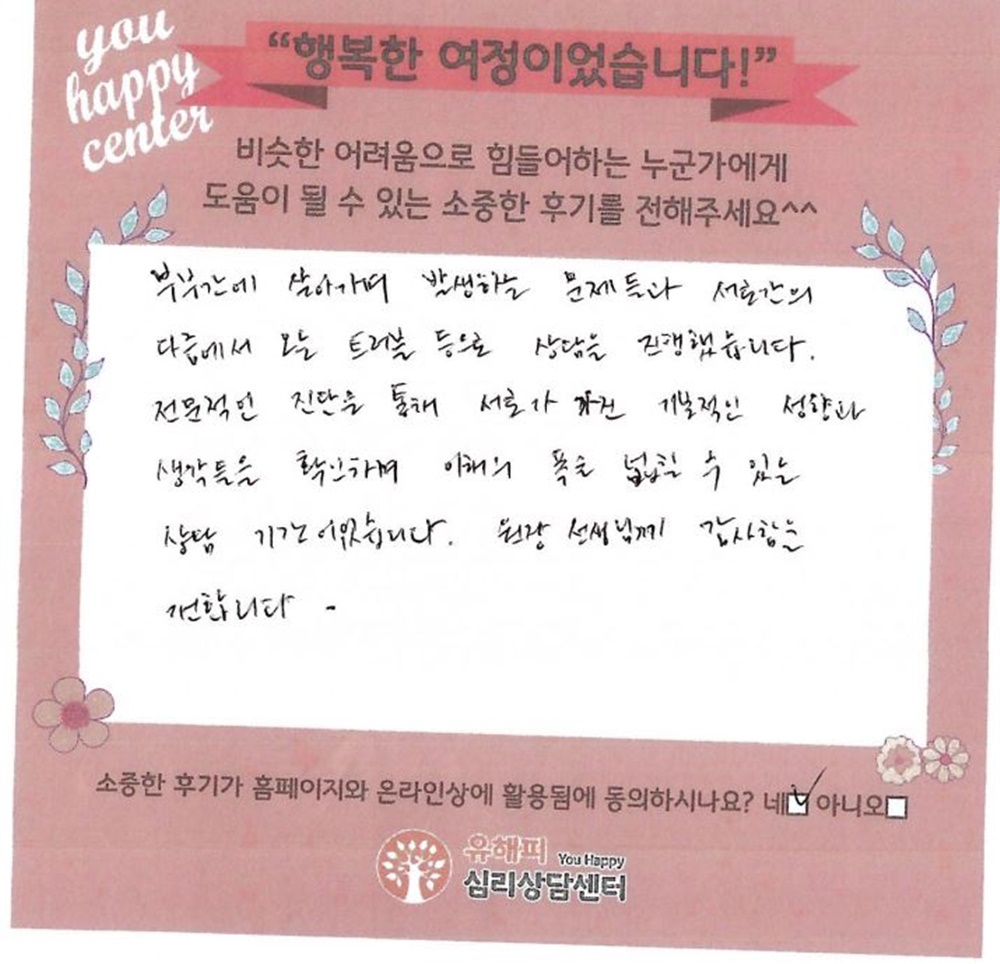 you
happy
center
“행복한 여정이었습니다!”
비슷한 어려움으로 힘들어하는 누군가에게
도움이 될 수 있는 소중한 후기를 전해주세요^^
부부간에 살아가며 발생하는 문제들과 서로간의
다름에서 오는 트러블 등으로 상담을 진행했습니다.
전문적인 진단을 통해 서로가 가진 기본적인 성향과
생각들을 확인하며 이해의 폭을 넓힐 수 있는
상담 기간이었습니다. 원장 선생님께 감사함을
전합니다 -
소중한 후기가 홈페이지와 온라인상에 활용됨에 동의하시나요? 네 아니오
유해피 You Happy
심리상담센터